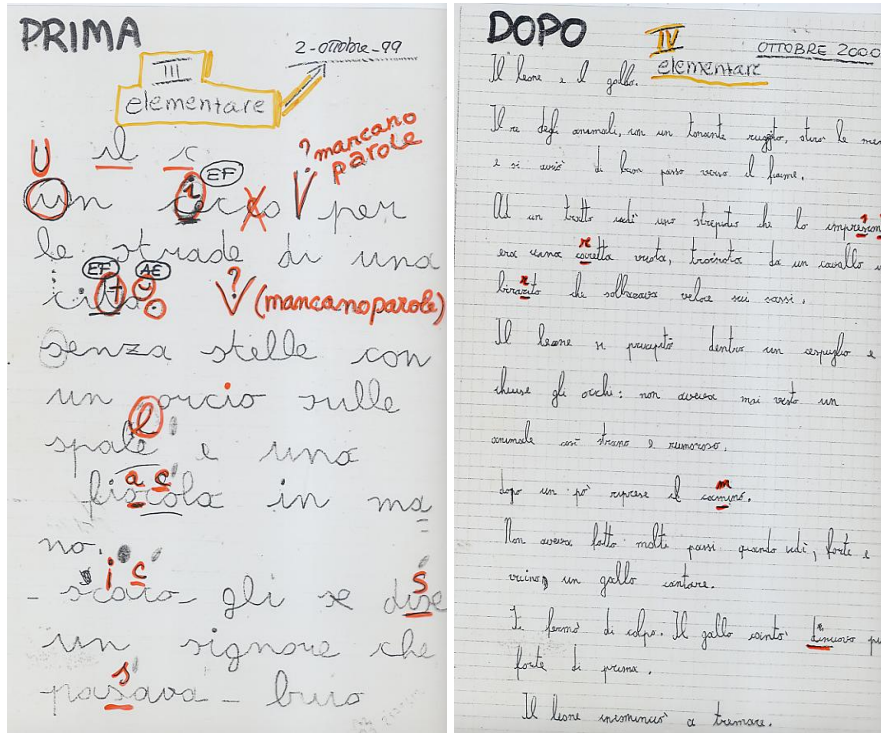 PRIMA
2-ottobre-99
III
elementare
? mancano
parole
U il c
EF
un cieco V per
le strade di una
EF AE
città. V? (mancano parole)
senza stelle con
un orcio sulle
l
spale e una
a c
fiacola in ma
no.
i c
- scaro- gli se dise
s
un signore che
s
pasava - buio
DOPO
IV
elementare
OTTOBRE 2000
Il leone e il gallo.
Il re degli animali, con un tonante ruggito, stirò le
e si avviò di buon passo verso il fiume.
Ad un tratto udì uno strepito che lo
era una caretta vuota, trainata da un cavallo
r
che sobbalzava veloce sui sassi.
Il leone si precipitò dentro un cespuglio e
chiuse gli occhi: non aveva mai visto un
animale così strano e rumoroso.
m
dopo un pò riprese il camino.
Non aveva fatto molti passi quando udì, forte e
vicino, un gallo cantare.
Si fermò di colpo. Il gallo cantò dinuovo
forte di prima.
Il leone incominciò a tremare.